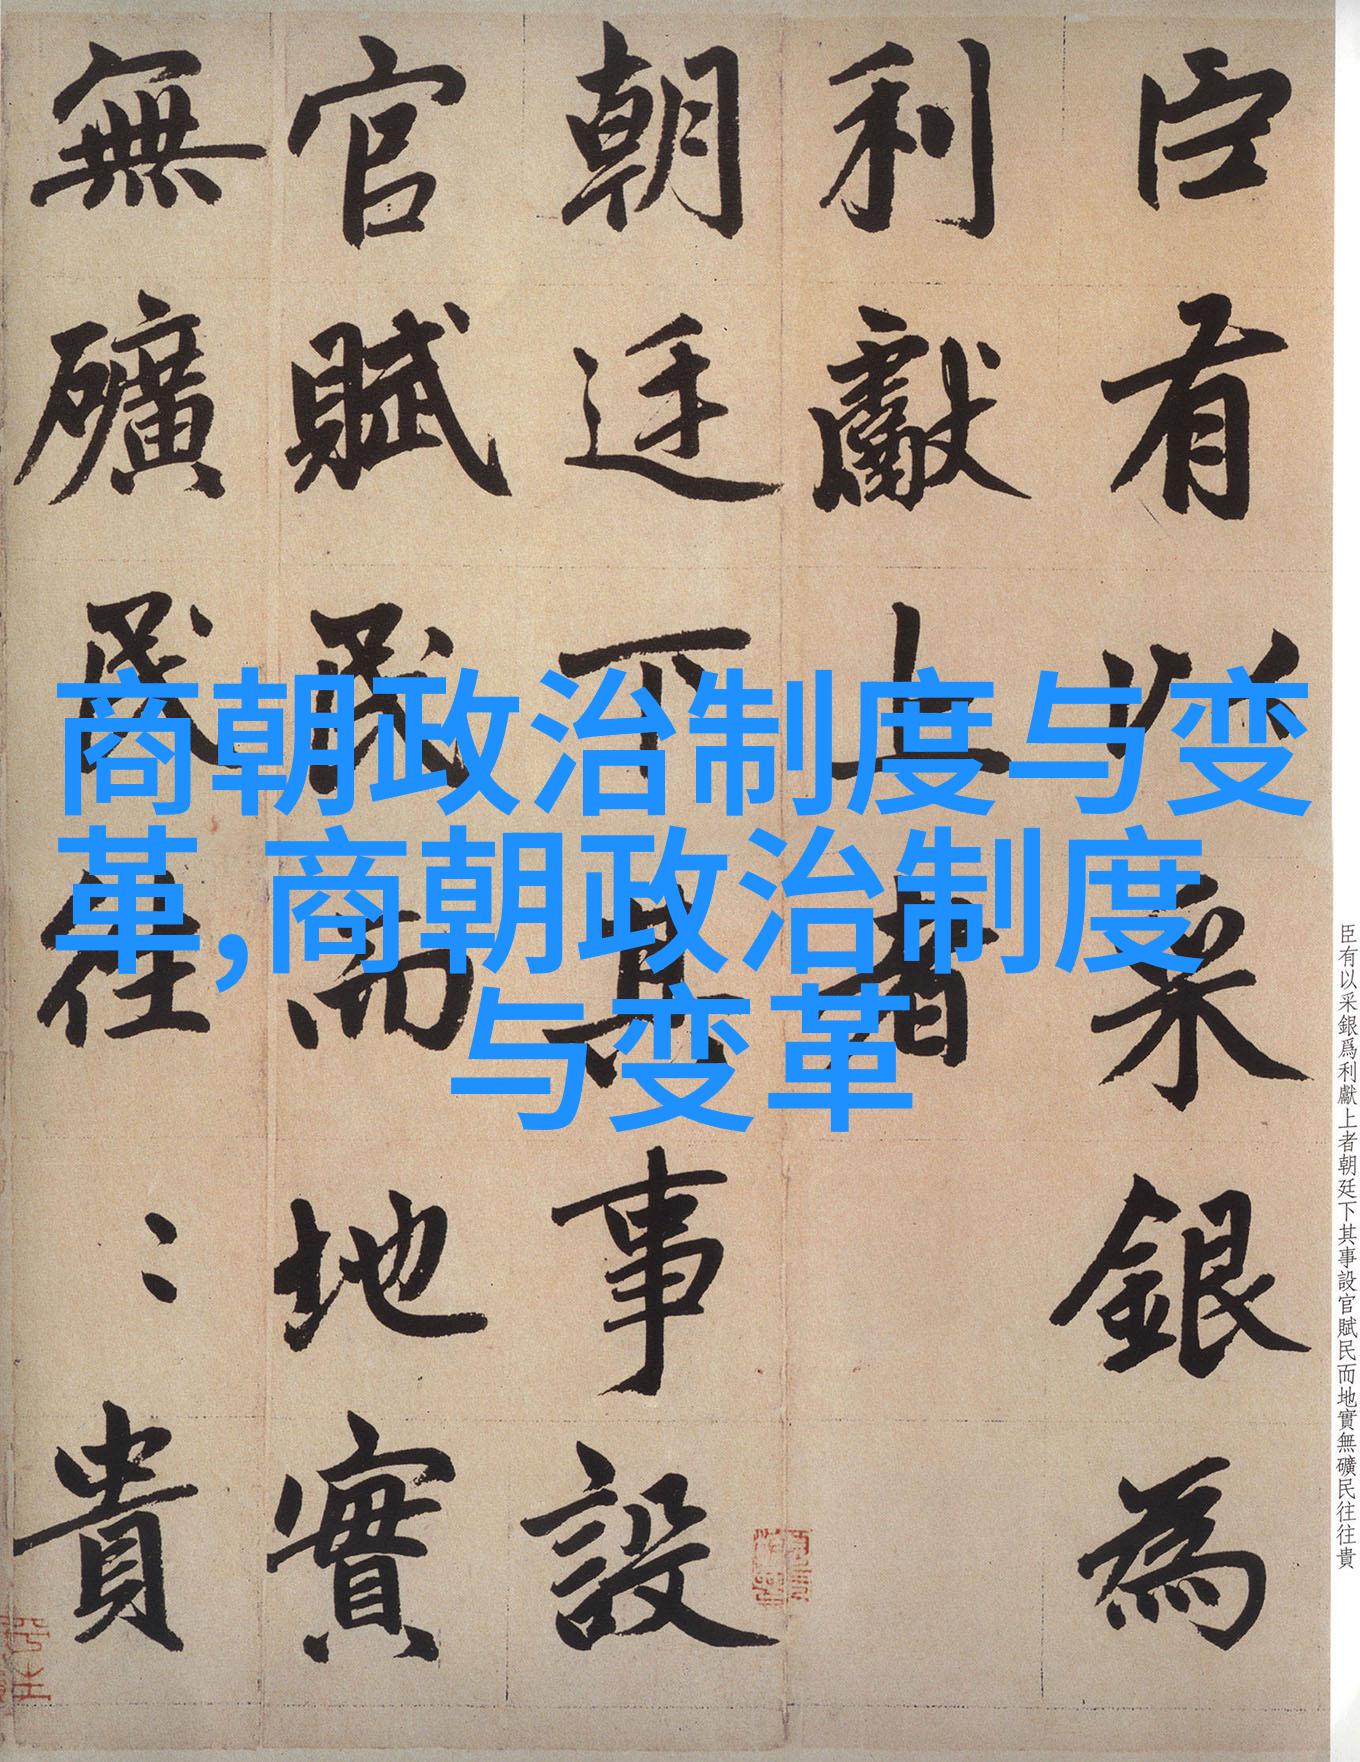 臣有以采銀為
利獻上者
朝廷下其事設
官賦民而地實
無礦民往〻貴
商朝政治制度与变
革,商朝政治制度
与变革
臣有以采銀爲利獻上者朝廷下其事設官賦民而地實無礦民往往貴